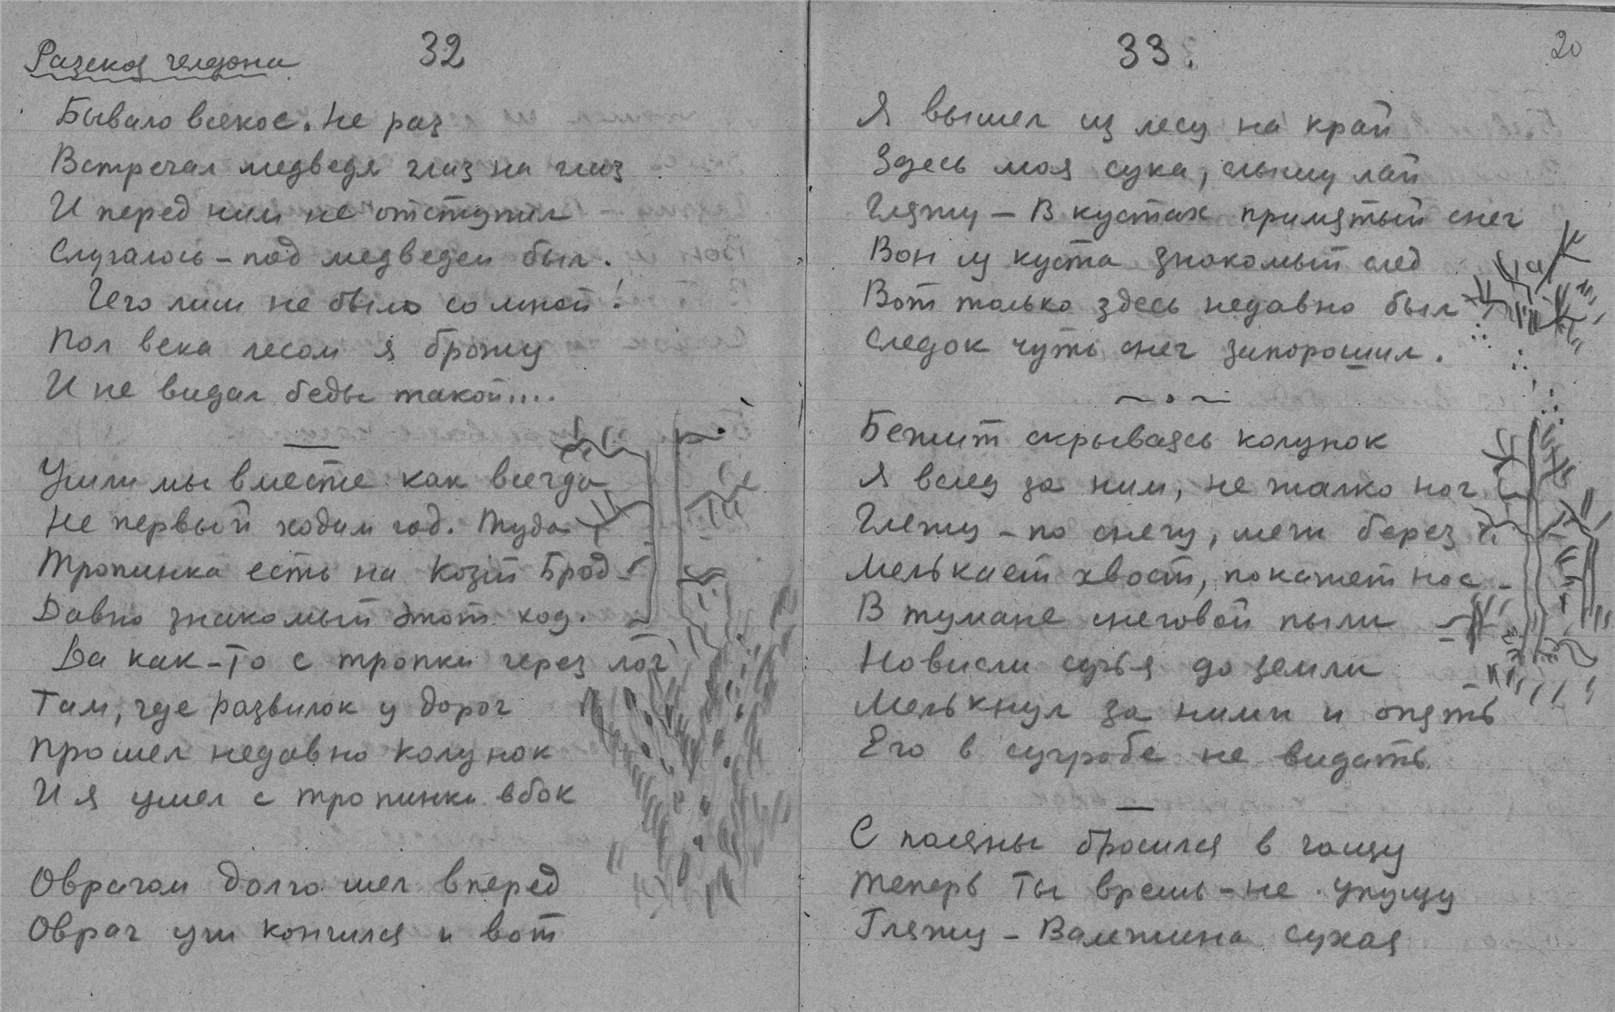 32
Рассказ челдона
Бывало всякое. Не раз
Встречал медведя глаз на глаз
И перед ним не отступил
Случалось – под медведем был.
Чего лиш не было со мной!
Пол века лесом я брожу
И не видал беды такой....
Ушли мы вместе как всегда
Не первый ходим год. Туда
Тропинка есть на Козий Брод –
Давно знакомый этот ход.
Да как-то с тропки через лог
Там, где развилок у дорог
Прошел недавно колунок
И я ушел с тропинки вбок
Оврагом долго шел вперед
Овраг уж кончился и вот
33.
20
Я вышел из лесу на край
Здесь моя сука, слышу лай
Гляжу – В кустах примятый снег
Вон из куста знакомый след
Вот только здесь недавно был
Следок чуть снег запорошил.
Бежит скрываясь колунок
Я вслед за ним, не жалко ног
Гляжу – по снегу, меж берез
Мелькает хвост, покажет нос –
В тумане снеговой пыли
Нависли сучья до земли
Мелькнул за ними и опять
Его в сугробе не видать
С поляны бросился в чащу
Теперь ты врешь – не упущу
Гляжу – Валежина сухая